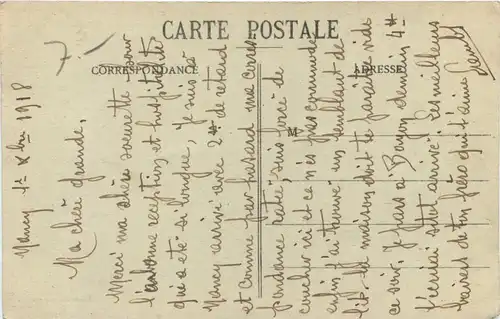 CARTE POSTALE
CORRESPONDANCE
ADRESSE
Nancy 1er Xbre 1918
Ma chère grande,
Merci ma chère soeurette pour
ta bonne réception et hospitalité
qui a été si longue, je suis à
Nancy arrivé avec 2h de retard
et comme par hasard ma corres
pondance ratée, suis forcé de
coucher ici et ce n'est pas commode
enfin j'ai trouvé un semblant de
lit. La maison doit te paraître vide
ce soir. Je pars à Bayon demain 4h
t'écrirai sitôt arrivé. Les meilleurs
baisers de ton frère qui t'aime